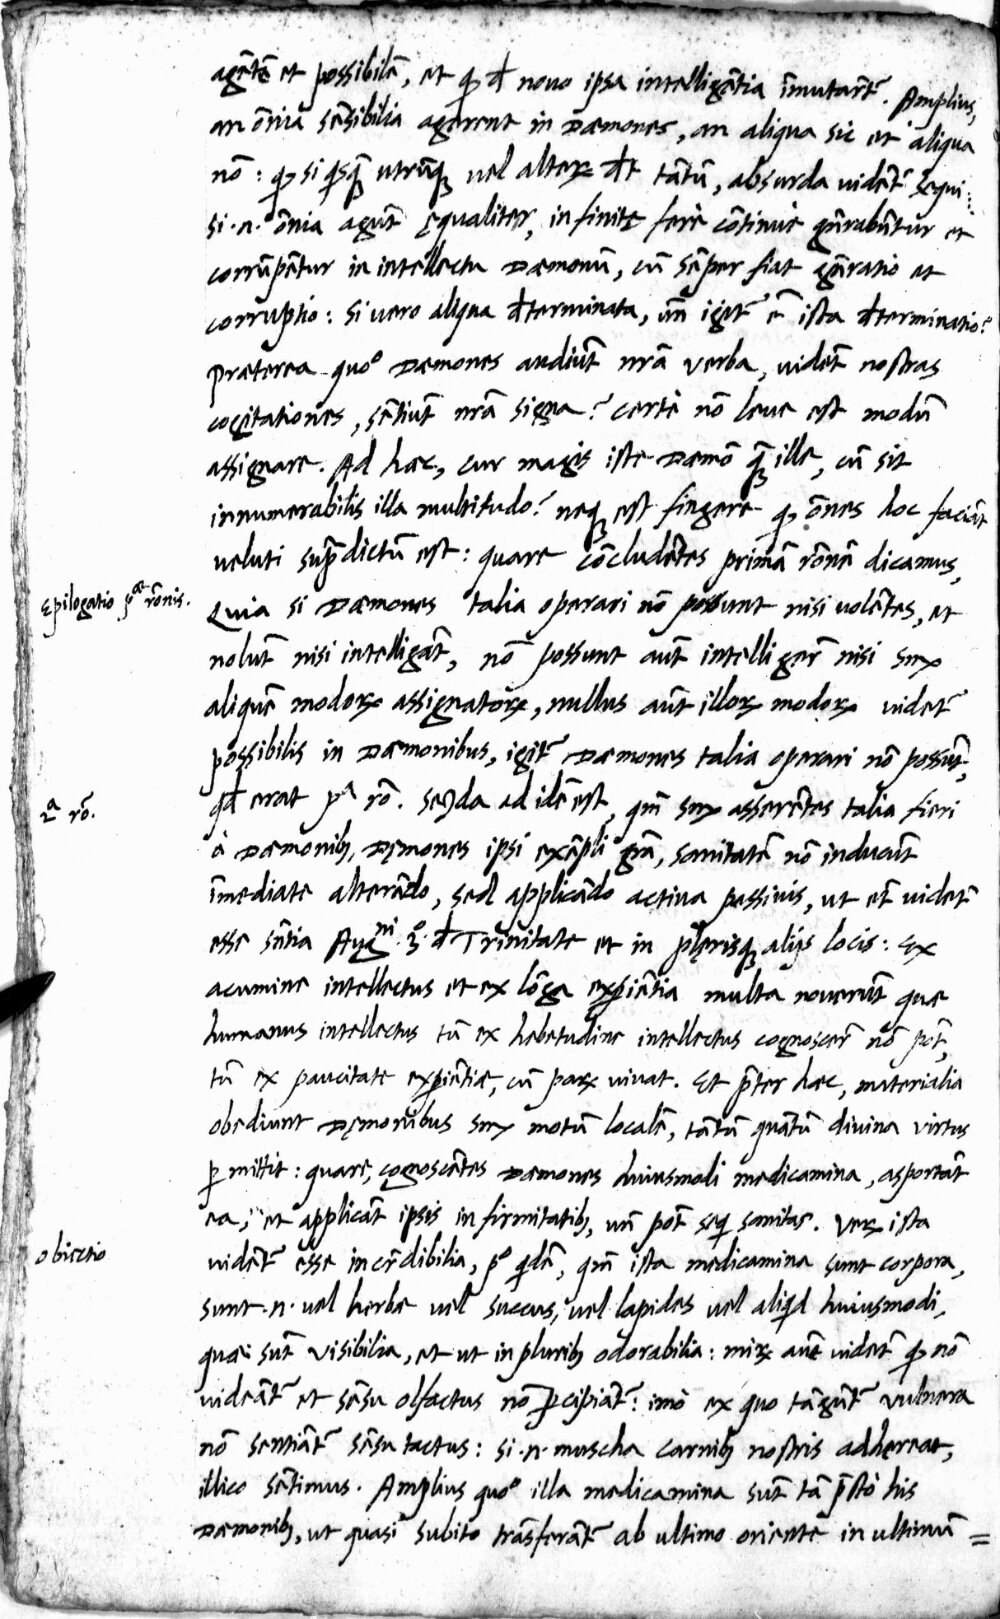 agētē et possibilē, et q̨ đ nouo ipsa intelligētia īmutarēt᷒. Amplius,
an oīnia sēsibilia agerent in Dæmones, an aliqua sic et aliqua
nō: q̨ si quisq̄ utrūq̨ uel alterꝝ đt tātū, absurda uidēt᷒ sequi:
si .n. ōnia agūt ęqualiter, infinitę ferè cōtinuè gn̄rabūtur et
corrūpētur in intellectu Dæmonū, cū sēper fiat gn̄ratio et
corruptio: si uero aliqua đterminata, un̄ igit᷒ ē ista đterminatio?
Præterea quoº Dæmones audiūt nr̄a verba, uidēt nostras
cogitationes, sētiūt nr̄a signa? certè nō leue est modū
assignare. Ad hæc, cur magis iste Dæmō quā ille, cū sit
innumerabilis illa multitudo? neq̨ est fingere q̨ ōnes hoc faciāt
veluti sup̄dictū est: quare cōcludētes primā rōnē dicamus,
Epilogatio pᵃᵉ rōnis.
Quia si Dæmones talia operari nō possunt nisi uolētes, et
nolūt nisi intelligāt, nō possunt aūt intelligerē nisi scđꝫ
aliquē modorꝝ assignatorꝝ, nullus aūt illorꝝ modorꝝ videt᷒
possibilis in Dæmonibus, igit᷒ Dæmones talia operari nō possūt,
2ᵃ rō.
qđ erat pᵃ rō. Secūda ad idē est, qm̄ scđꝫ asserētes talia fieri
à Dæmonibꝫ, Dęmones ipsi exēpli grā, sanitatē nō inducūt
īmediate alterādo, sed applicādo actiua passiuis, ut et̄ uidet᷒
esse sn̄tia Augⁿⁱ .3º. đ Trinitate et in plęrisq̨ alijs locis: Ex
acumine intellectus et ex lōga exp̱iētia multa nouerūt quæ
humanus intellectus tū ex hebetudine intellectus cognoscerē nō pōt,
tū ex paucitate exp̱iētiæ, cū parꝝ uiuat. Et p̄ter hæc, materialia
obediunt Dęmonibus scđꝫ motū localē, tātū quātū diuina virtus
p̱mittit: quare, cognoscētes Dæmones huiusmodi medicamina, asportāt
ea, et applicāt ipsis infirmitatibꝫ, un̄ pōt seq̇ sanitas. Verꝫ ista
obiectio
uidēt᷒ esse incrēdibilia, pº quidē, qm̄ ista medicamina sunt corpora,
sunt .n. uel herbæ uel succus, uel lapides uel aliqd huiusmodi,
quæ sūt visibilia, et ut in pluribꝫ odorabilia: mirꝫ autē uidet᷒ q̨ nō
uideāt᷒ et sēsu olfactus nō p̱cipiāt᷒: imò ex quo tāgūt᷒ vulnera
nō sentiāt᷒ sēsu tactus: si .n. muscha carnibꝫ nostris adhęreat,
illico sētimus. Amplius quoº illa medicamina sūt tā p̄stò his
Dæmonibꝫ, ut quasi subito trāsferāt᷒ ab ultimo oriente in ultimū =